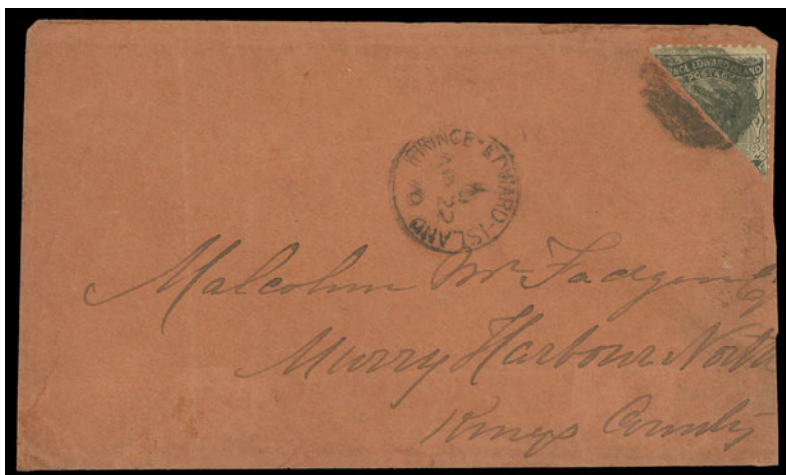 PRINCE EDWARD ISLAND
POSTAGE
PRINCE-EDWARD-ISLAND
22
Malcolm Mc Fadgen
Murry Harbour North
Kings County